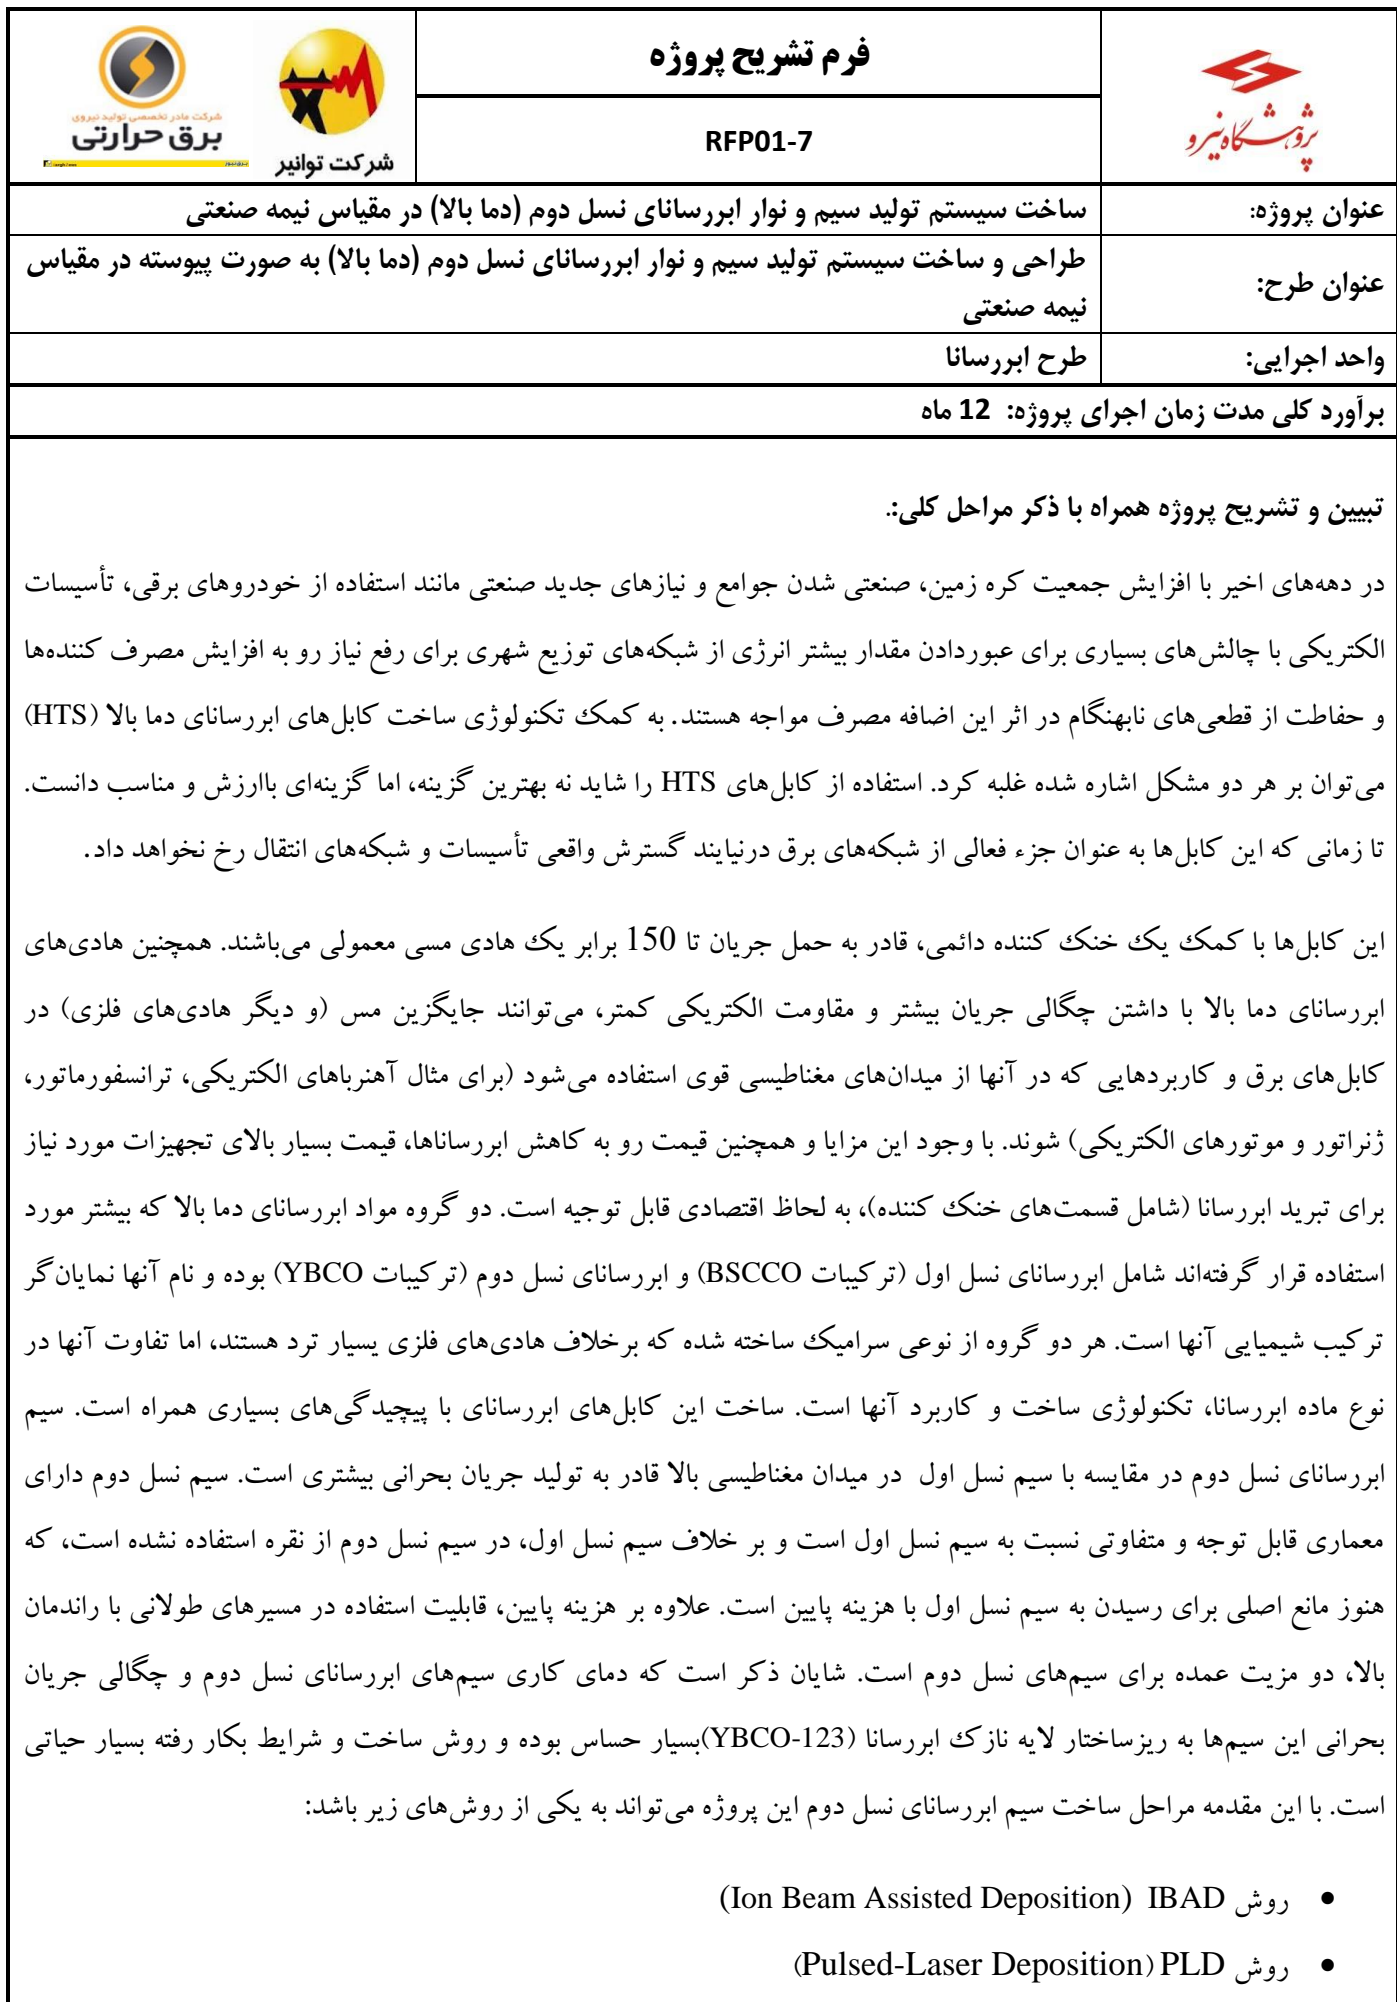 فرم تشریح پروژه
RFP01-7
پژوهشگاه نیرو
شرکت توانیر
شرکت مادر تخصصی تولید نیروی
برق حرارتی
عنوان پروژه:
ساخت سیستم تولید سیم و نوار ابررسانای نسل دوم (دما بالا) در مقیاس نیمه صنعتی
عنوان طرح:
طراحی و ساخت سیستم تولید سیم و نوار ابررسانای نسل دوم (دما بالا) به صورت پیوسته در مقیاس
نیمه صنعتی
واحد اجرایی:
طرح ابررسانا
برآورد کلی مدت زمان اجرای پروژه: 12 ماه
تبیین و تشریح پروژه همراه با ذکر مراحل کلی:.
در دهه‌های اخیر با افزایش جمعیت کره زمین، صنعتی شدن جوامع و نیازهای جدید صنعتی مانند استفاده از خودروهای برقی، تأسیسات
الکتریکی با چالش‌های بسیاری برای عبوردادن مقدار بیشتر انرژی از شبکه‌های توزیع شهری برای رفع نیاز رو به افزایش مصرف کننده‌ها
و حفاطت از قطعی‌های نابهنگام در اثر این اضافه مصرف مواجه هستند. به کمک تکنولوژی ساخت کابل‌های ابررسانای دما بالا (HTS)
می‌توان بر هر دو مشکل اشاره شده غلبه کرد. استفاده از کابل‌های HTS را شاید نه بهترین گزینه، اما گزینه‌ای باارزش و مناسب دانست.
تا زمانی که این کابل‌ها به عنوان جزء فعالی از شبکه‌های برق درنیایند گسترش واقعی تأسیسات و شبکه‌های انتقال رخ نخواهد داد.
این کابل‌ها با کمک یک خنک کننده دائمی، قادر به حمل جریان تا 150 برابر یک هادی مسی معمولی می‌باشند. همچنین هادی‌های
ابررسانای دما بالا با داشتن چگالی جریان بیشتر و مقاومت الکتریکی کمتر، می‌توانند جایگزین مس (و دیگر هادی‌های فلزی) در
کابل‌های برق و کاربردهایی که در آنها از میدان‌های مغناطیسی قوی استفاده می‌شود (برای مثال آهنرباهای الکتریکی، ترانسفورماتور،
ژنراتور و موتورهای الکتریکی) شوند. با وجود این مزایا و همچنین قیمت رو به کاهش ابررساناها، قیمت بسیار بالای تجهیزات مورد نیاز
برای تبرید ابررسانا (شامل قسمت‌های خنک کننده)، به لحاظ اقتصادی قابل توجیه است. دو گروه مواد ابررسانای دما بالا که بیشتر مورد
استفاده قرار گرفته‌اند شامل ابررسانای نسل اول (ترکیبات BSCCO) و ابررسانای نسل دوم (ترکیبات YBCO) بوده و نام آنها نمایان‌گر
ترکیب شیمیایی آنها است. هر دو گروه از نوعی سرامیک ساخته شده که برخلاف هادی‌های فلزی یسیار ترد هستند، اما تفاوت آنها در
نوع ماده ابررسانا، تکنولوژی ساخت و کاربرد آنها است. ساخت این کابل‌های ابررسانای با پیچیدگی‌های بسیاری همراه است. سیم
ابررسانای نسل دوم در مقایسه با سیم نسل اول در میدان مغناطیسی بالا قادر به تولید جریان بحرانی بیشتری است. سیم نسل دوم دارای
معماری قابل توجه و متفاوتی نسبت به سیم نسل اول است و بر خلاف سیم نسل اول، در سیم نسل دوم از نقره استفاده نشده است، که
هنوز مانع اصلی برای رسیدن به سیم نسل اول با هزینه پایین است. علاوه بر هزینه پایین، قابلیت استفاده در مسیرهای طولانی با راندمان
بالا، دو مزیت عمده برای سیم‌های نسل دوم است. شایان ذکر است که دمای کاری سیم‌های ابررسانای نسل دوم و چگالی جریان
بحرانی این سیم‌ها به ریزساختار لایه نازک ابررسانا (YBCO-123)بسیار حساس بوده و روش ساخت و شرایط بکار رفته بسیار حیاتی
است. با این مقدمه مراحل ساخت سیم ابررسانای نسل دوم این پروژه می‌تواند به یکی از روش‌های زیر باشد:
• روش IBAD (Ion Beam Assisted Deposition)
• روش PLD (Pulsed-Laser Deposition)